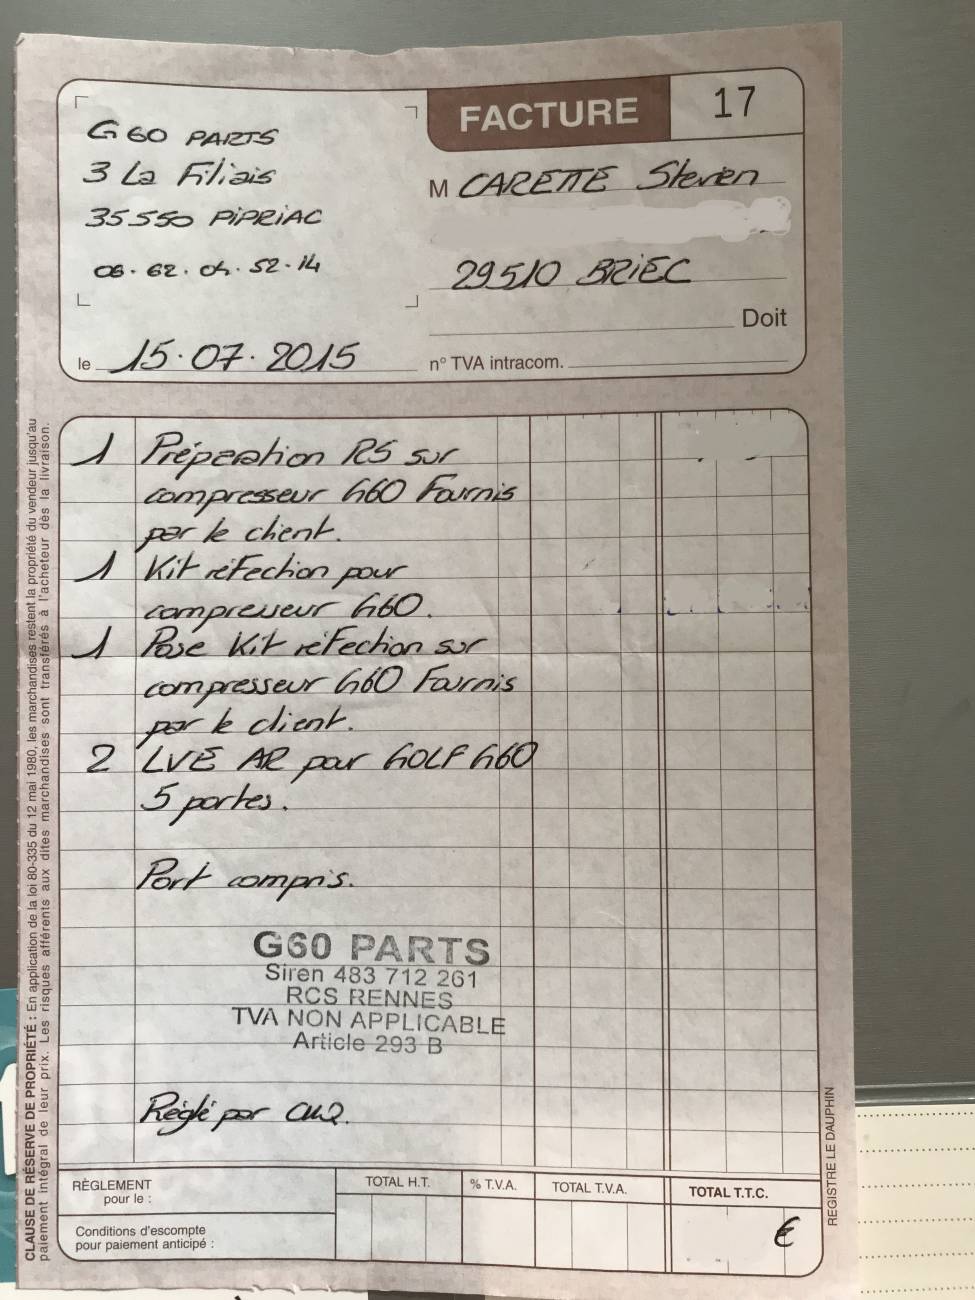 G60 PARTS
3 La Filiais
35550 PIPRIAC
06.62.04.52.14
le 15.07.2015
FACTURE 17
M CARETTE Steven
29510 BRIEC
Doit
n° TVA intracom.
1 Préparation RS sur
compresseur G60 Fournis
par le client.
1 Kit réfection pour
compresseur G60.
1 Pose Kit réfection sur
compresseur G60 Fournis
par le client.
2 LVE AR pour GOLF G60
5 portes.
Port compris.
G60 PARTS
Siren 483 712 261
RCS RENNES
TVA NON APPLICABLE
Article 293 B
Réglé par CHQ.
RÈGLEMENT
pour le :
Conditions d'escompte
pour paiement anticipé :
TOTAL H.T.
% T.V.A.
TOTAL T.V.A.
TOTAL T.T.C.
€
CLAUSE DE RÉSERVE DE PROPRIÉTÉ : En application de la loi 80-335 du 12 mai 1980, les marchandises restent la propriété du vendeur jusqu'au
paiement intégral de leur prix. Les risques afférents aux dites marchandises sont transférés à l'acheteur dès la livraison.
REGISTRE LE DAUPHIN